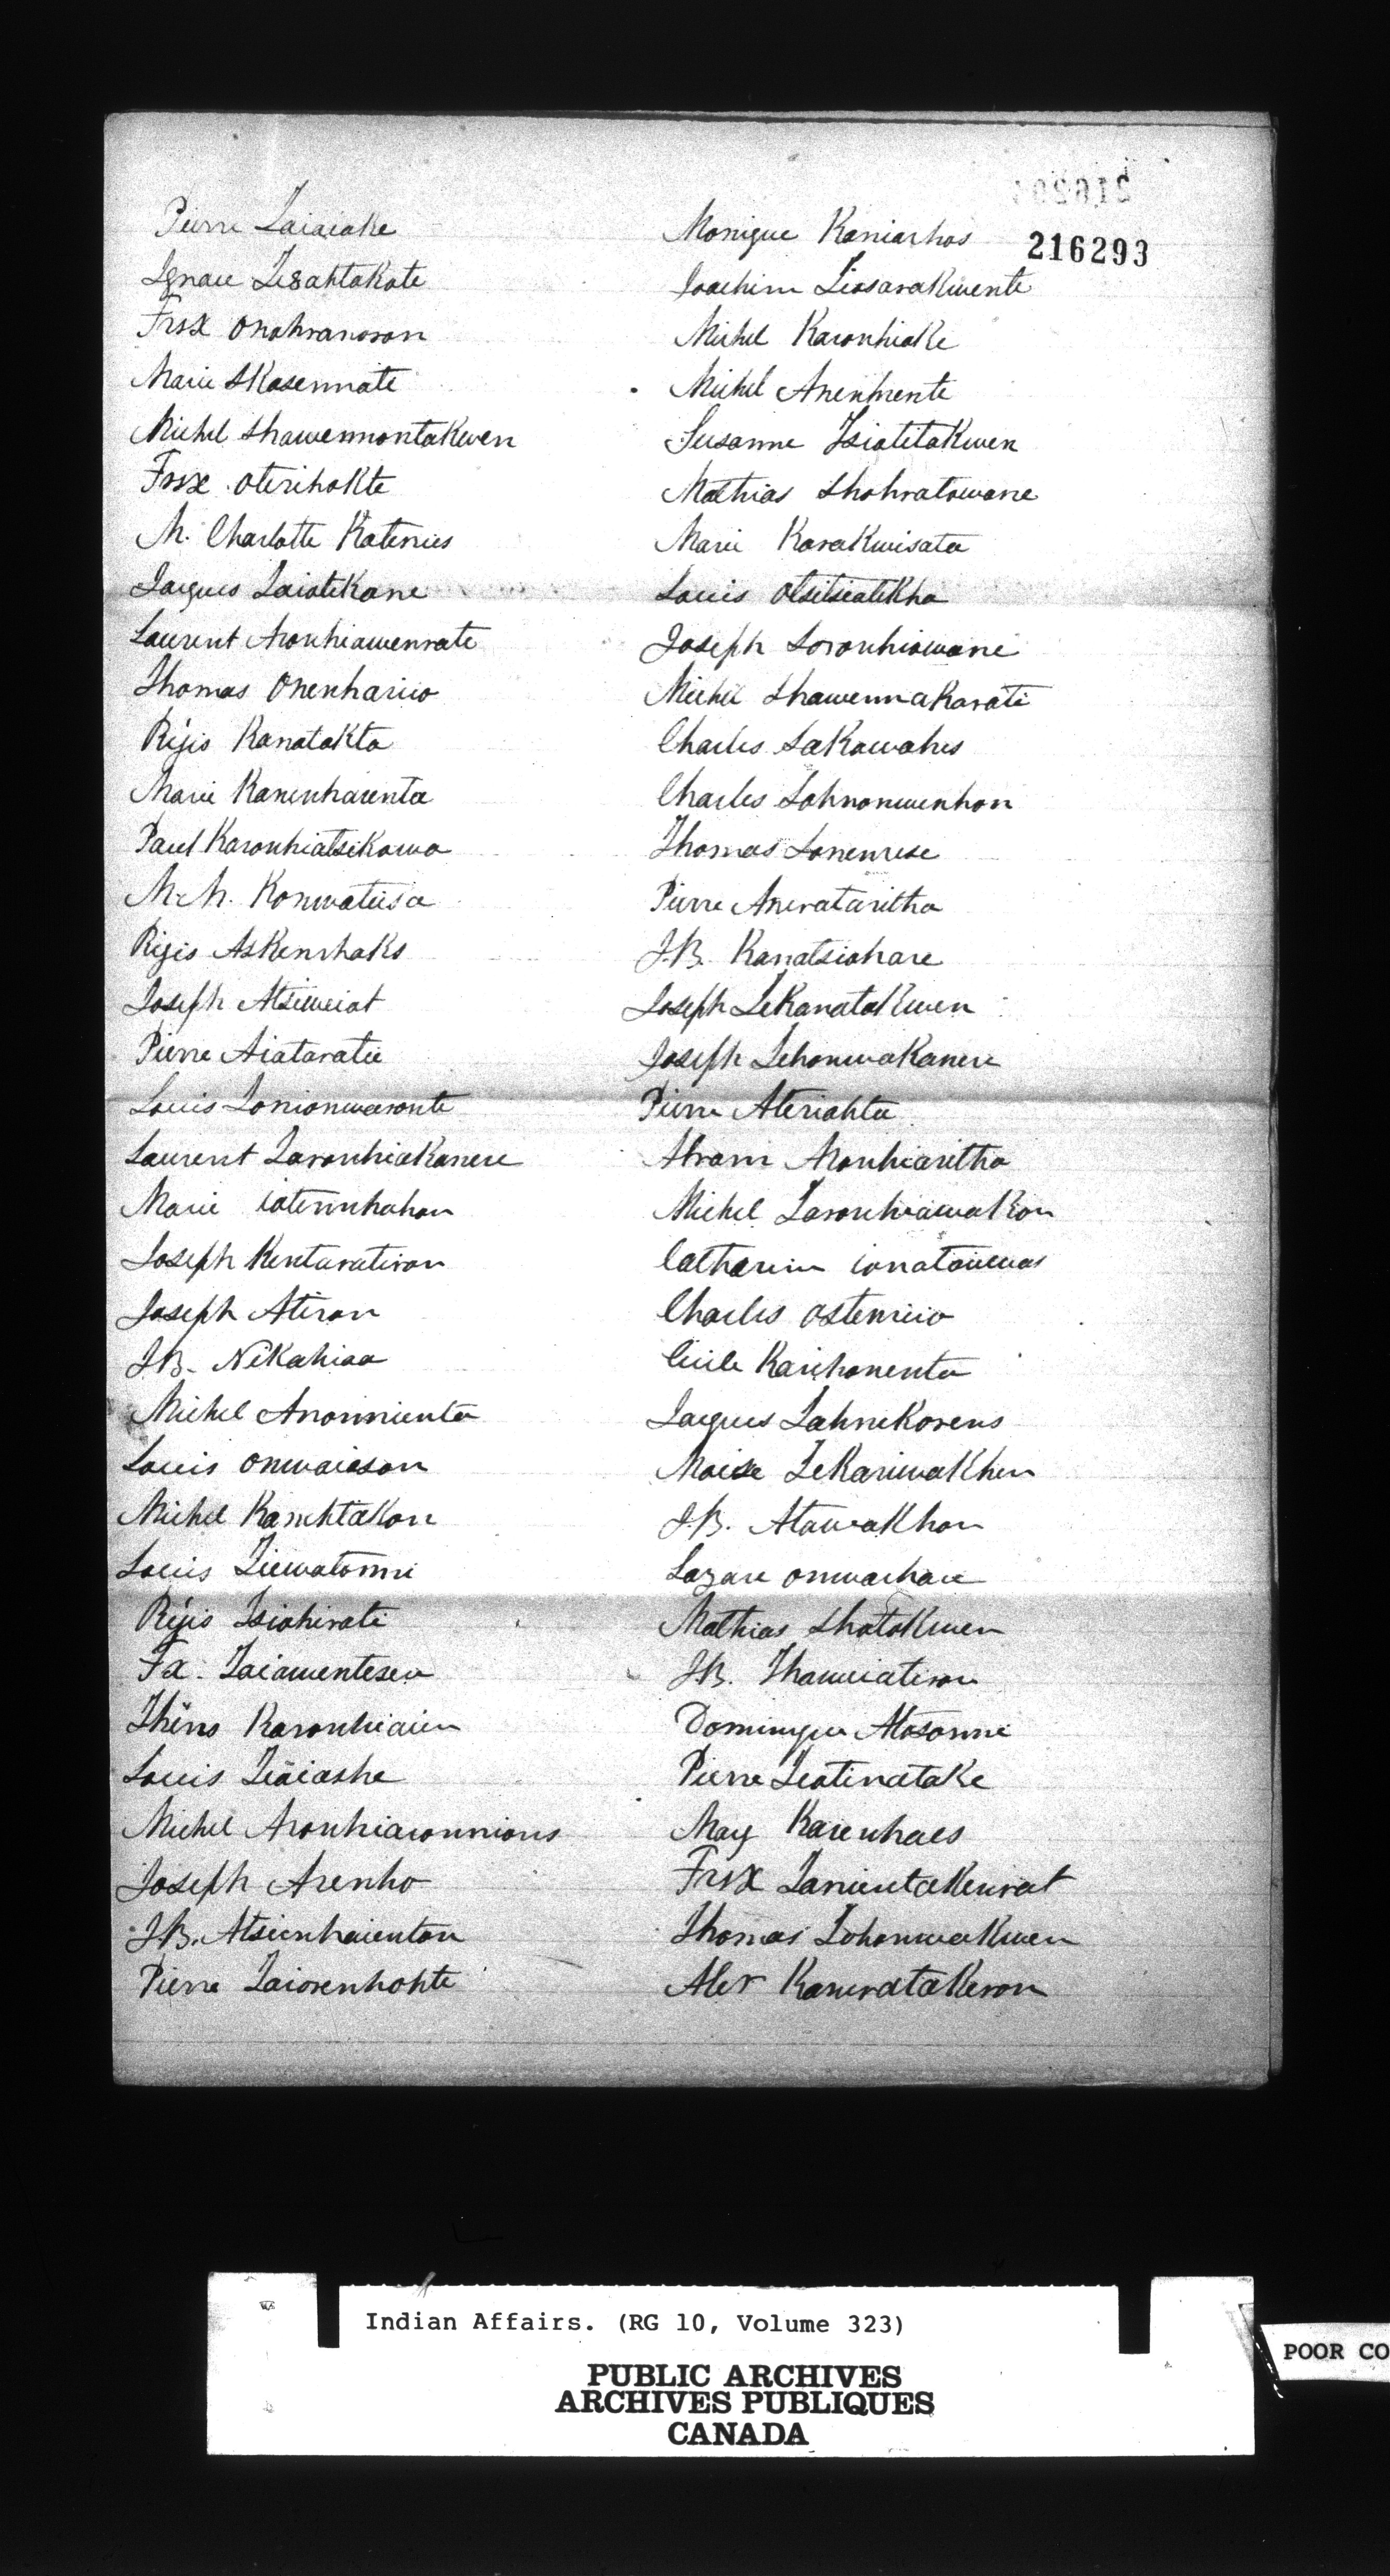 216293
Pierre Taiaiake
Ignace Te8ahtakote
Frsx Onahranoron
Marie Skasennate
Michel Shawennontakwen
Frsx Oterihokte
M. Charlotte Katenies
Jacques Taiatekane
Laurent Aronhiawenrate
Thomas Onenhariio
Régis Kanatakta
Marie Kanenharenta
Paul Karonhiatsikowa
M. M. Konwatiisa
Régis Askenrhaks
Joseph Atsiweiat
Pierre Aiataratie
Louis Tonionwaronte
Laurent Taronhiakanere
Marie iatennhahon
Joseph Kentaratiron
Joseph Atiron
J.B. Nikahiaa
Michel Anonnienta
Louis Onwaieson
Michel Kanehtakon
Louis Tiewatonni
Régis Tsiohirate
Fx. Taiawentesen
Thens Karonhiaien
Louis Teaiashe
Michel Aronhiaronnions
Joseph Arenho
J.B. Atsienhaienton
Pierre Taiorenhohte
Monique Kaniarhos
Joachim Tiosarakwente
Michel Karonhiake
Michel Anenhrente
Susanne Tsiatitakwen
Mathias Shohratowane
Marie Karakwisata
Louis Otsitsiatekha
Joseph Soronhiowane
Michel Shawennakarate
Charles Sakawahes
Charles Tohnonwenhon
Thomas Sonenrese
Pierre Anerataritha
J.B. Kanatsiohare
Joseph Tekanatakwen
Joseph Tehonwakanere
Pierre Ateriahta
Abram Aronhiaritha
Michel Taronhiawakon
Catherine ionataiewas
Charles Ostenriio
Cécile Karihonenta
Jacques Tahnekorens
Moise Tekariwakhen
J.B. Atawakhon
Lazare Onwarhare
Mathias Shatakwen
J.B. Thaweiatiron
Dominique Atosonni
Pierre Teotinatake
Mary Karenhaes
Frsx Tanientakenrat
Thomas Tohonwakwen
Alex Kaneratakeron
Indian Affairs. (RG 10, Volume 323)
PUBLIC ARCHIVES
ARCHIVES PUBLIQUES
CANADA
POOR CO